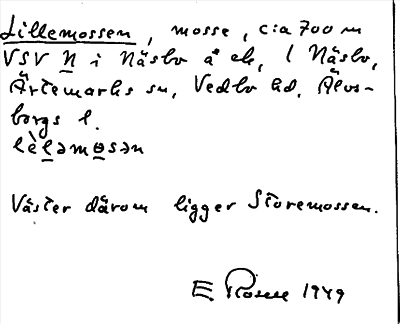 Lillemossen, mosse, c:a 700 m
VSV N i Näsbo å ek, l Näsbo,
Ärtemarks sn, Vedbo hd, Älvs-
borgs l.
lèləmɵsən
Väster därom ligger Storemossen.
E Rosell 1949